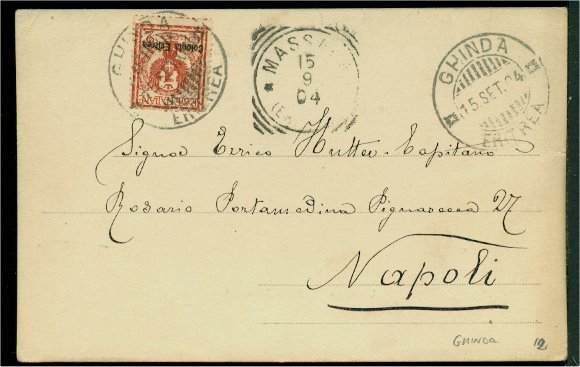 GHINDA
ERITREA
Colonia Eritrea
MASSA
15
9
04
(ER
GHINDA
15.SET.04
ERITREA
Signor Errico Hutter-Capitano
Rosario Portamedina Pignasecca 27
Napoli
GHINDA